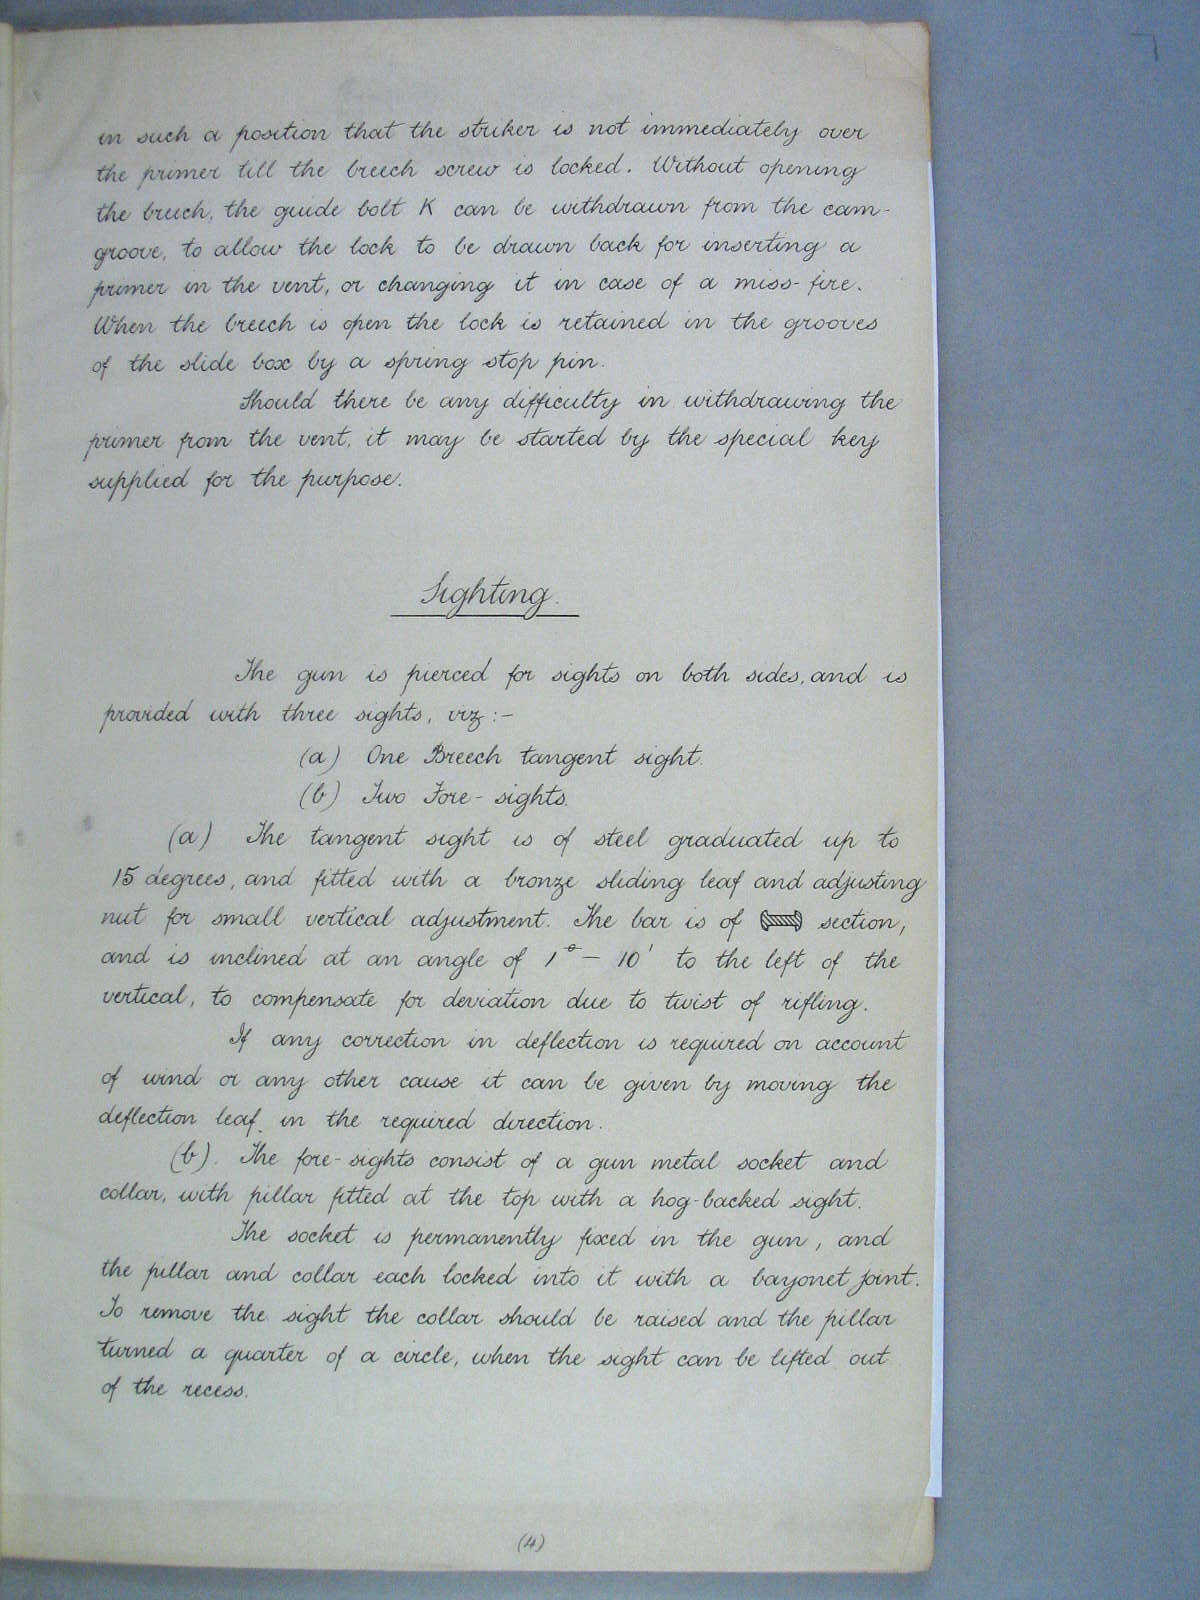 in such a position that the striker is not immediately over
the primer till the breech screw is locked. Without opening
the breech, the guide bolt K can be withdrawn from the cam-
groove, to allow the lock to be drawn back for inserting a
primer in the vent, or changing it in case of a miss-fire.
When the breech is open the lock is retained in the grooves
of the slide box by a spring stop pin.
Should there be any difficulty in withdrawing the
primer from the vent, it may be started by the special key
supplied for the purpose.
Sighting.
The gun is pierced for sights on both sides, and is
provided with three sights, viz:-
(a) One Breech tangent sight.
(b) Two Fore-sights.
(a) The tangent sight is of steel graduated up to
15 degrees, and fitted with a bronze sliding leaf and adjusting
nut for small vertical adjustment. The bar is of section,
and is inclined at an angle of 1° - 10' to the left of the
vertical, to compensate for deviation due to twist of rifling.
If any correction in deflection is required on account
of wind or any other cause it can be given by moving the
deflection leaf in the required direction.
(b). The fore-sights consist of a gun metal socket and
collar, with pillar fitted at the top with a hog-backed sight.
The socket is permanently fixed in the gun, and
the pillar and collar each locked into it with a bayonet joint.
To remove the sight the collar should be raised and the pillar
turned a quarter of a circle, when the sight can be lifted out
of the recess.
(4)